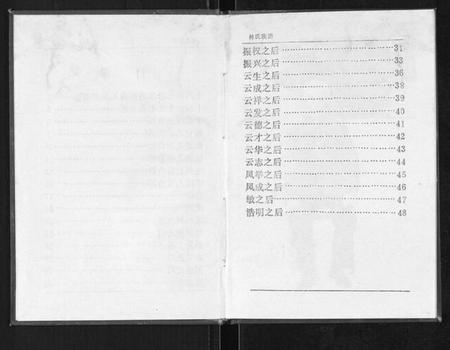 林氏族谱
振权之后……………………………31
振兴之后……………………………33
云生之后……………………………36
云成之后……………………………38
云祥之后……………………………39
云发之后……………………………40
云德之后……………………………41
云才之后……………………………42
云华之后……………………………43
云志之后……………………………44
凤举之后……………………………45
凤成之后……………………………46
敏之后……………………………47
浩明之后……………………………48